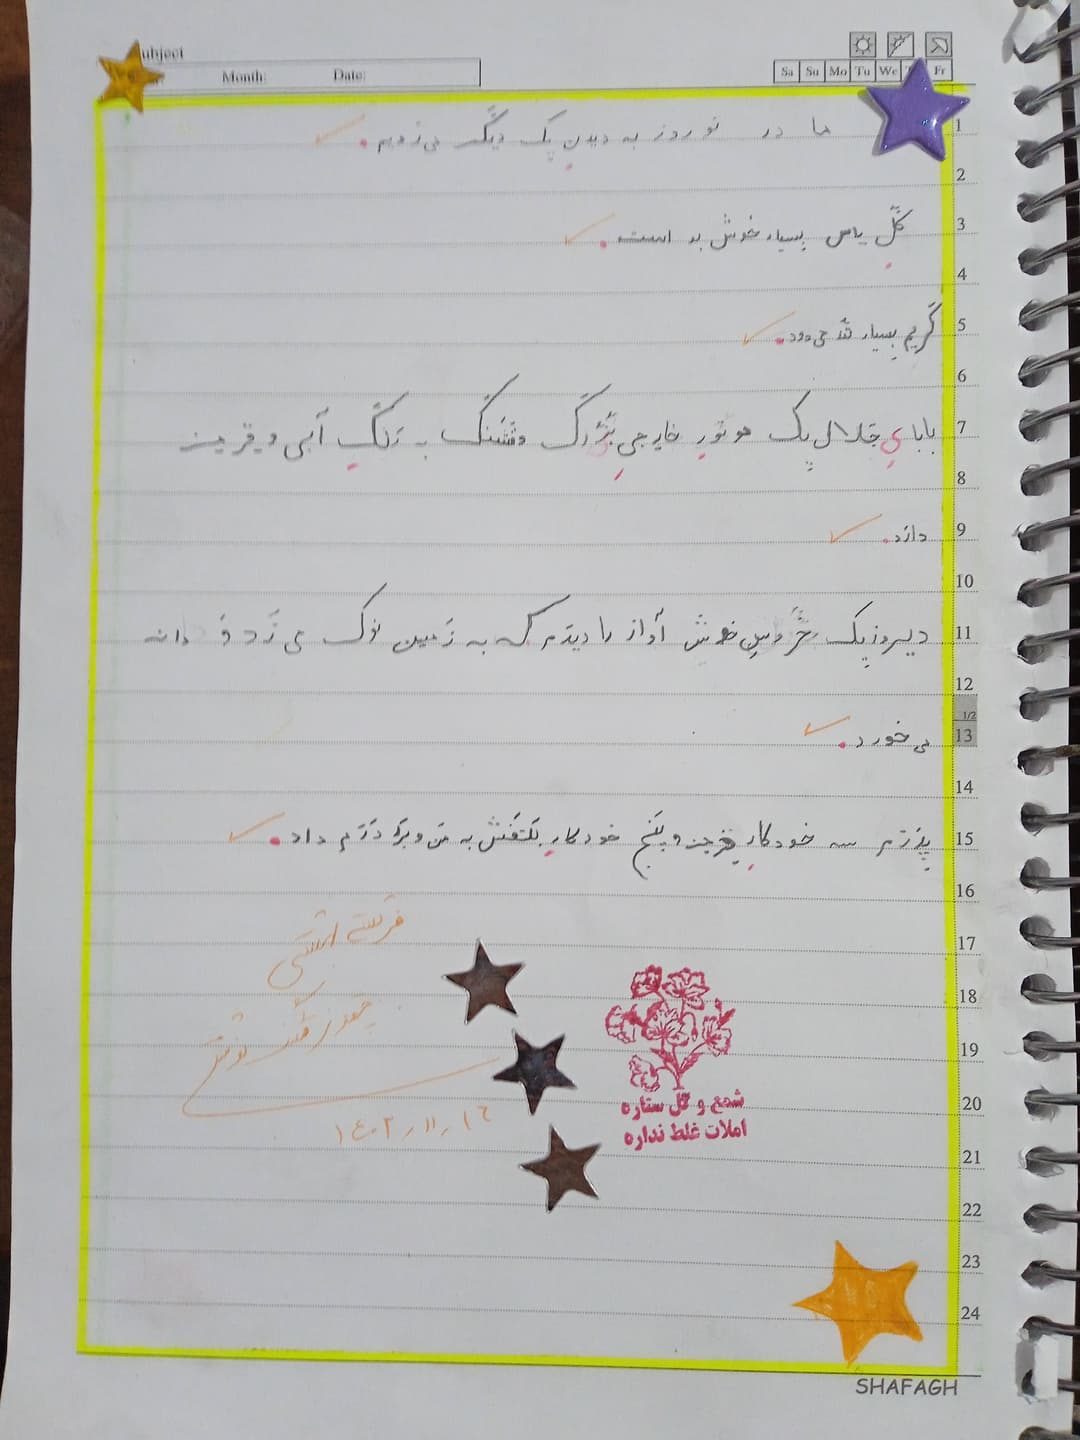 Subject
Month: Date:
Sa Su Mo Tu We Fr
1 ما در نوروز به دیدن یک دیگر می رویم.
2
3 گل یاس بسیار خوش بو است.
4
5 بسیار می دود.
6
7 بابای جلال یک موتور خارجی بزرگ و قشنگ به رنگ آبی و قرمز
8
9 دارد.
10
11 دیروز یک خروس خوش آواز را دیدم که به زمین نوک می زد و دانه
12
1/2
13 می خورد.
14
15 پدرم سه خودکار قرمز و پنج خودکار بنفش به من و برادرم داد.
16
17
18
19
20 شمع و گل ستاره
املات غلط نداره
۱۴۰۲/۱۱/۱۶
21
22
23
24
SHAFAGH